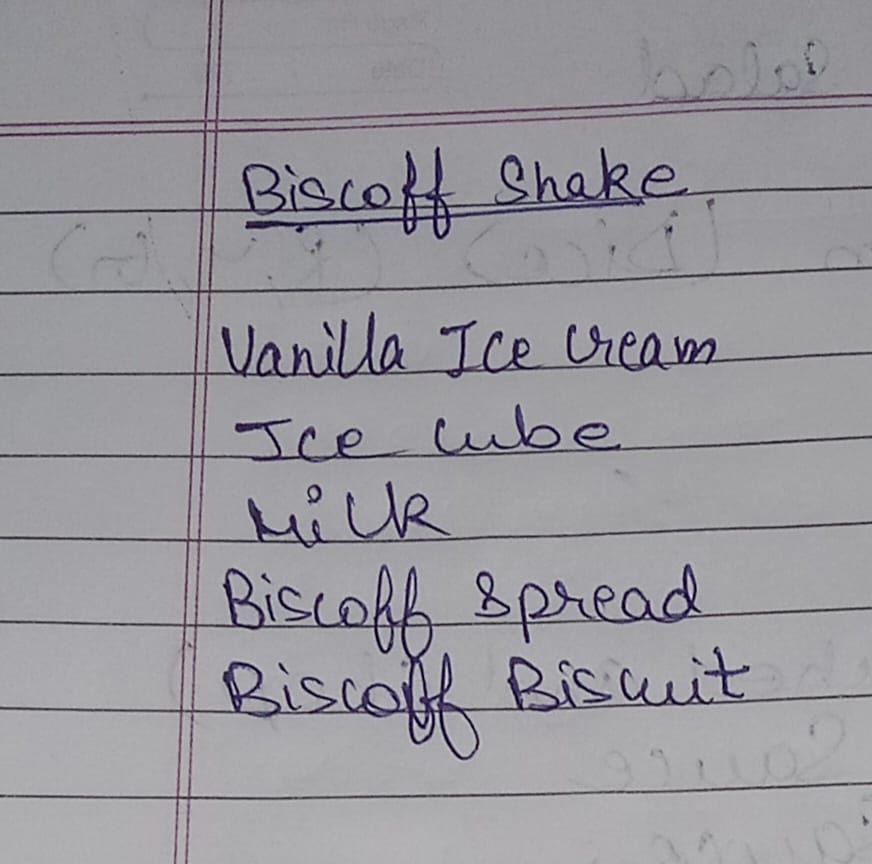 Biscoff Shake
Vanilla Ice Cream
Ice Cube
Milk
Biscoff Spread
Biscoff Biscuit